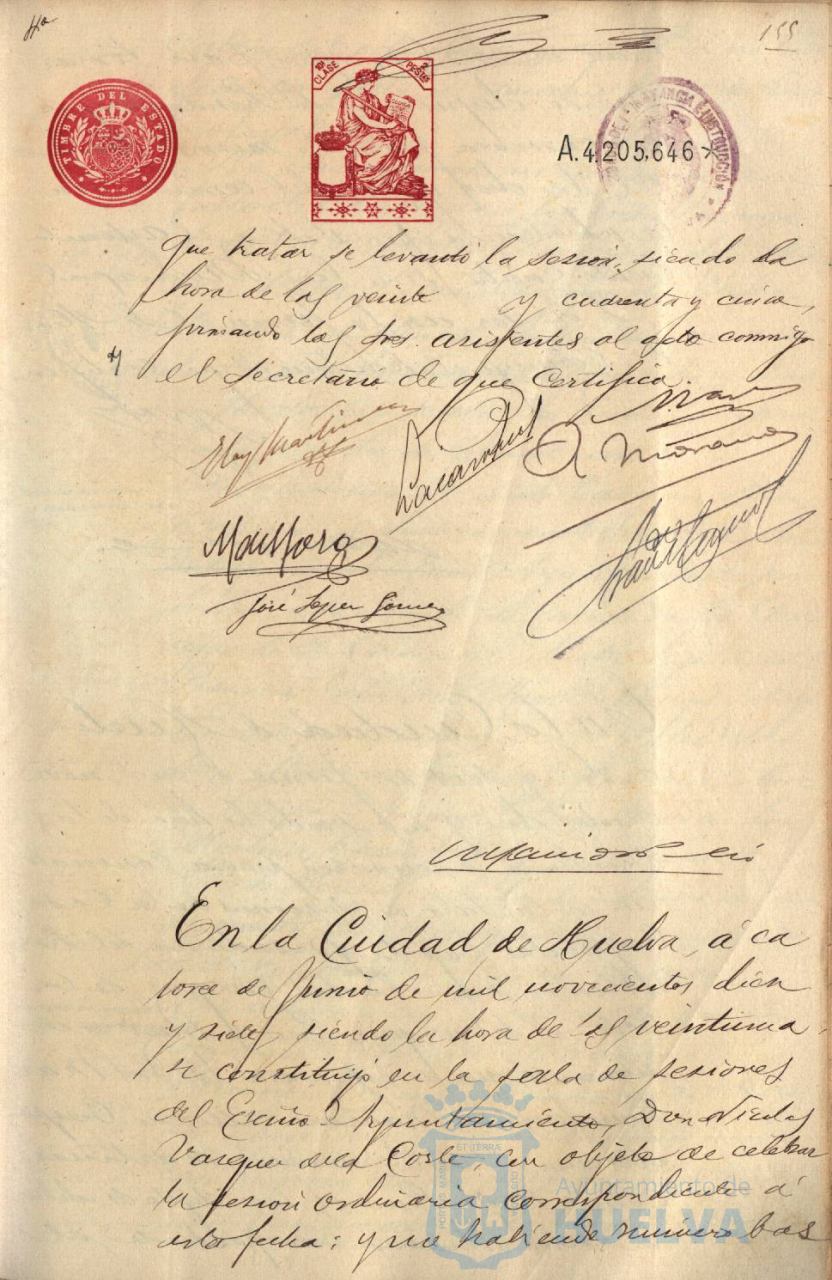 155
TIMBRE DEL ESTADO
10ª CLASE 2 PESTAS
A.4.205,646*
que tratar se levantó la sesion, siendo la
hora de las veinte y cuarenta y cinco,
firmando los Sres. asistentes al acto conmigo
el Secretario de que certifico.
Eloy Martinez
A. Morano
José Lopez Gomez
En la Ciudad de Huelva, á ca
torce de Junio de mil novecientos diez
y siete, siendo la hora de las veintiuna
se constituyó en la sala de sesiones
del Excmo. Ayuntamiento, Don Nicolas
Vazquez de la Corte, con objeto de celebrar
la sesion ordinaria correspondiente á
esta fecha; y no habiendo numero bas
Ayuntamiento de
HUELVA